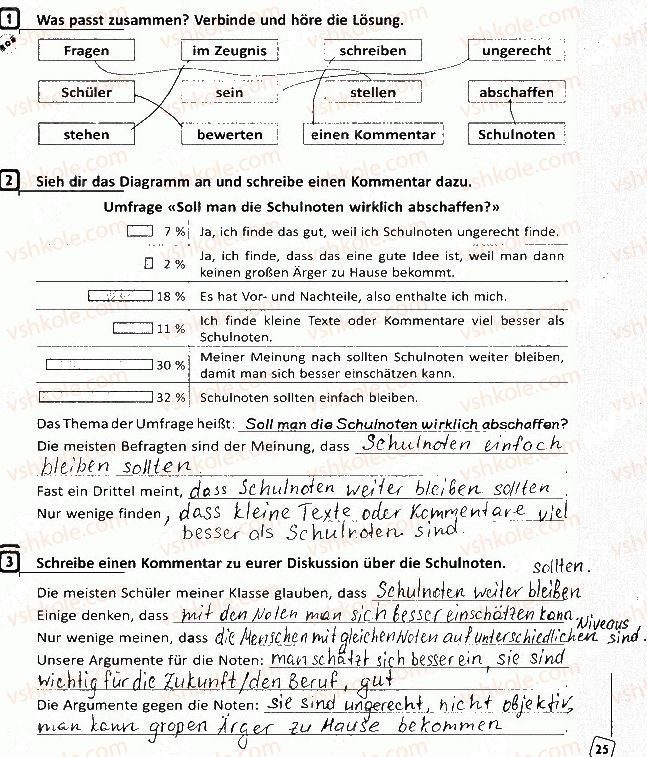 1 Was passt zusammen? Verbinde und höre die Lösung.
Fragen im Zeugnis schreiben ungerecht
Schüler sein stellen abschaffen
stehen bewerten einen Kommentar Schulnoten
2 Sieh dir das Diagramm an und schreibe einen Kommentar dazu.
Umfrage «Soll man die Schulnoten wirklich abschaffen?»
7 % Ja, ich finde das gut, weil ich Schulnoten ungerecht finde.
2 % Ja, ich finde, dass das eine gute Idee ist, weil man dann
keinen großen Ärger zu Hause bekommt.
18 % Es hat Vor- und Nachteile, also enthalte ich mich.
11 % Ich finde kleine Texte oder Kommentare viel besser als
Schulnoten.
30 % Meiner Meinung nach sollten Schulnoten weiter bleiben,
damit man sich besser einschätzen kann.
32 % Schulnoten sollten einfach bleiben.
Das Thema der Umfrage heißt: Soll man die Schulnoten wirklich abschaffen?
Die meisten Befragten sind der Meinung, dass Schulnoten einfach
bleiben sollten.
Fast ein Drittel meint, dass Schulnoten weiter bleiben sollten.
Nur wenige finden, dass kleine Texte oder Kommentare viel
besser als Schulnoten sind.
3 Schreibe einen Kommentar zu eurer Diskussion über die Schulnoten. sollten.
Die meisten Schüler meiner Klasse glauben, dass Schulnoten weiter bleiben
Einige denken, dass mit den Noten man sich besser einschätzen kann. Niveaus
Nur wenige meinen, dass die Menschen mit gleichen Noten auf unterschiedlichen sind.
Unsere Argumente für die Noten: man schätzt sich besser ein, sie sind
wichtig für die Zukunft/den Beruf, gut
Die Argumente gegen die Noten: sie sind ungerecht, nicht objektiv,
man kann gropen Ärger zu Hause bekommen
25
vshkole.com